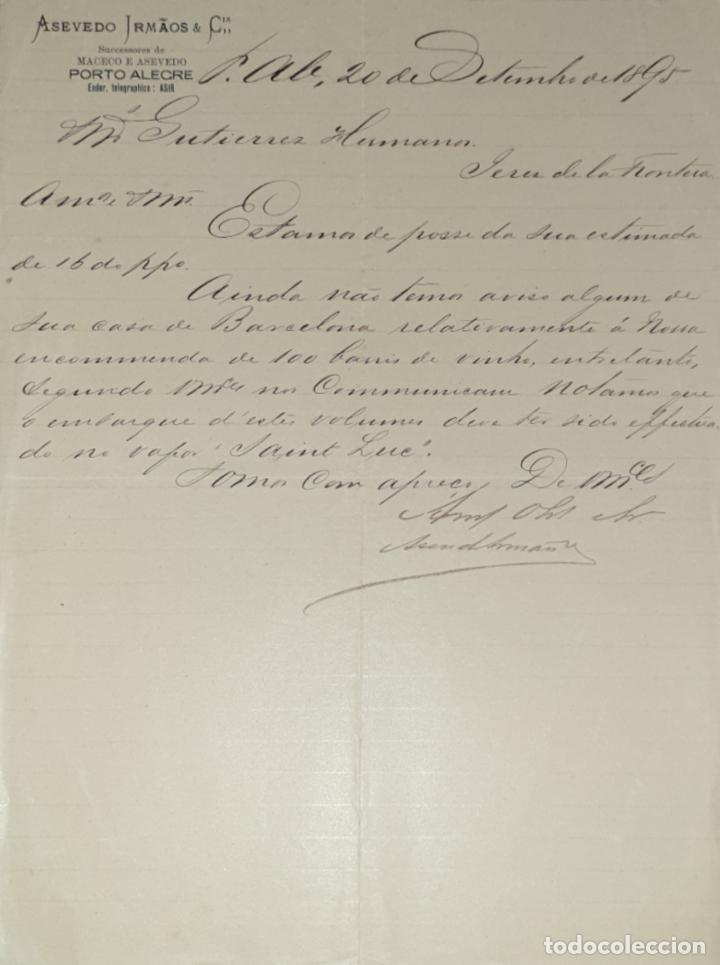 ASEVEDO IRMÃOS & CIA.
Successores de
MACECO E ASEVEDO
PORTO ALEGRE
Ender. telegraphico: ASIR
P. Ale, 20 de Setembro de 1895
Gutierrez Hermanos.
Jerez de la Frontera.
Amos e
Estamos de posse da sua estimada
de 16 do ppo.
Ainda não temos aviso algum de
sua casa de Barcelona relativamente á Nossa
encommenda de 100 barris de vinho, entretanto,
segundo nos Communicam notâmos que
o embarque d'estes volumes deve ter sido effectua-
do no vapor "Saint Luc".
Somos Com apreço De
todocoleccion.net